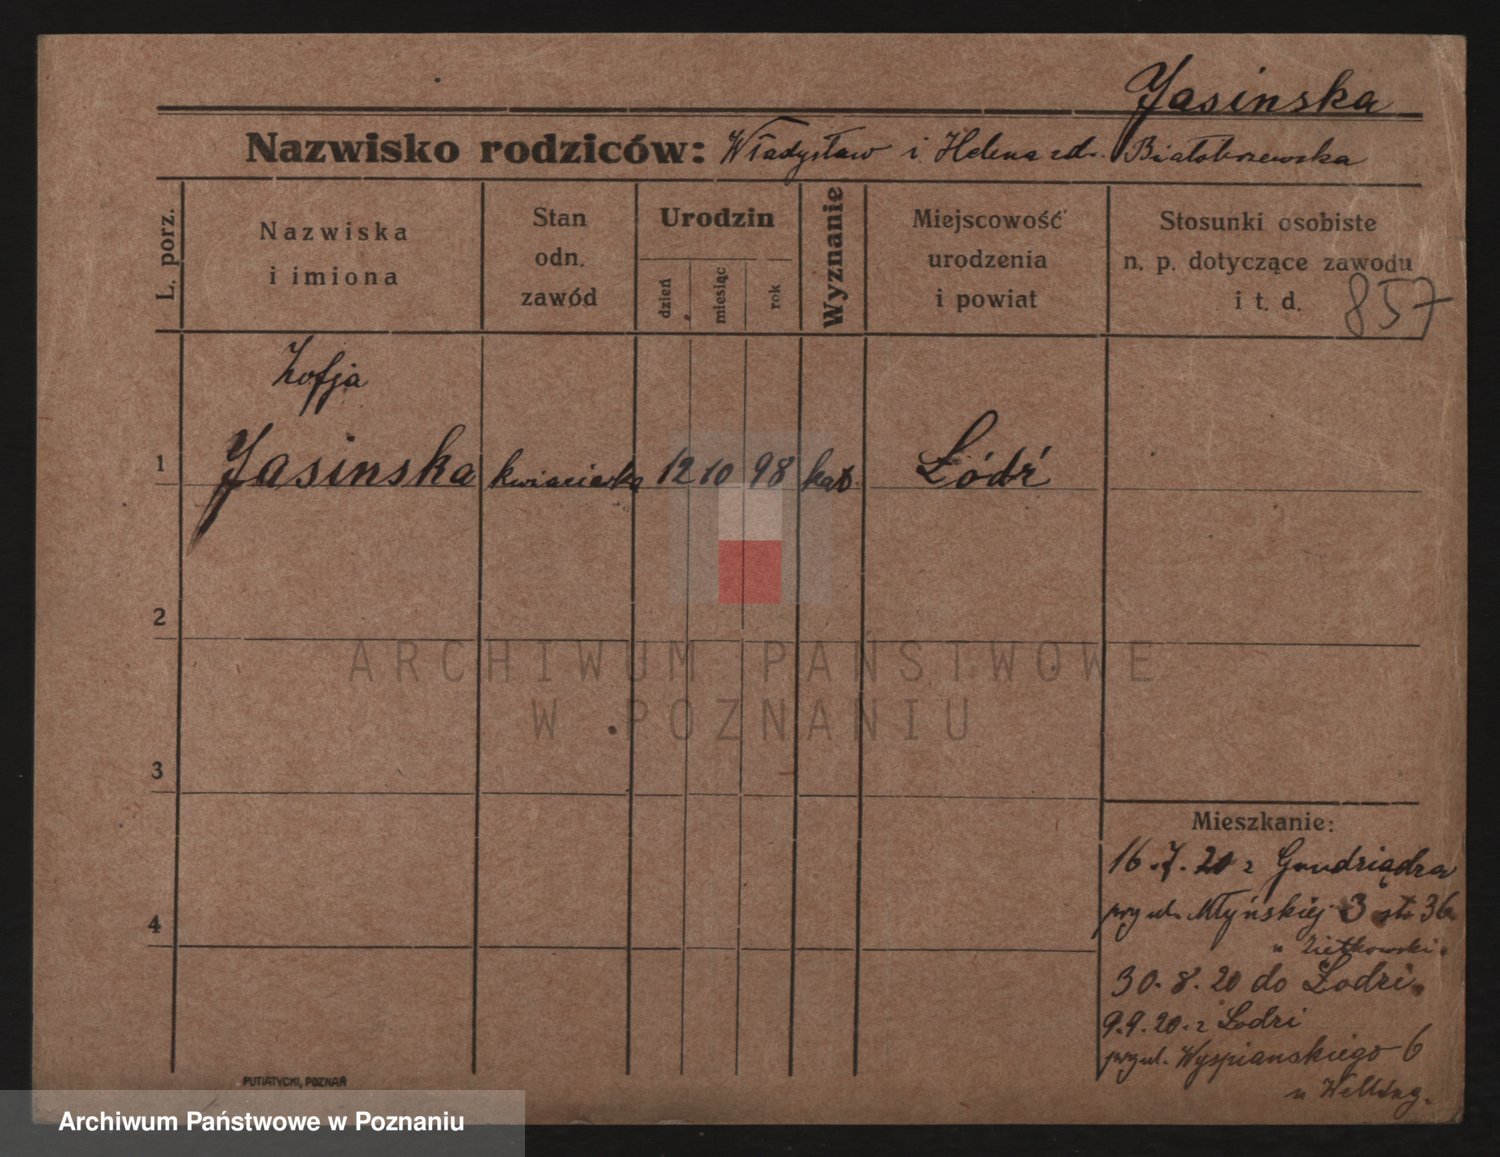 Jasinska
Nazwisko rodziców: Władysław i Helena zd. Białobrzewska
L. porz.
Nazwiska
i imiona
Stan
odn.
zawód
Urodzin
dzień
miesiąc
rok
Wyznanie
Miejscowość
urodzenia
i powiat
Stosunki osobiste
n. p. dotyczące zawodu
i t. d.
857
Zofja
1 Jasinska kwiaciarka 12 10 98 kat. Łódź
2
3
4
ARCHIWUM PAŃSTWOWE
W POZNANIU
Mieszkanie:
16.7.20 z Grudziądza
przy ul. Młyńskiej 3 st. 36
u Zietkowski.
30.8.20 do Łodzi.
9.9.20. z Łodzi
przy ul. Wyspianskiego 6
u
PUTIATYCKI, POZNAŃ
Archiwum Państwowe w Poznaniu